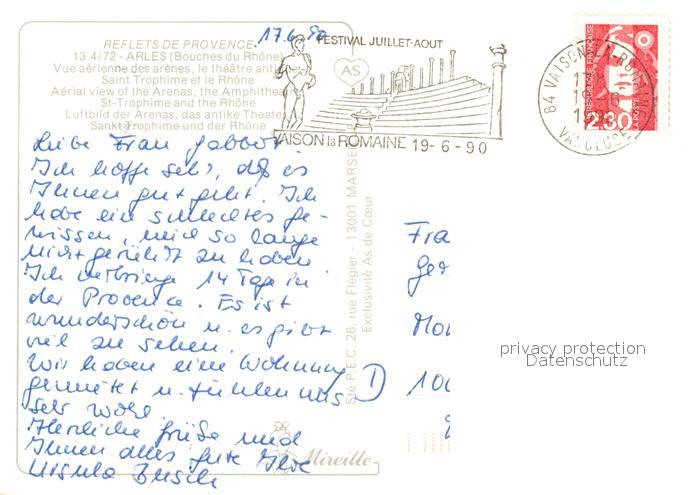 17.6.90
REFLETS DE PROVENCE
13.4/72 - ARLES (Bouches du Rhône)
Vue aérienne des arènes, le théâtre ant
Saint Trophime et le Rhône
Aérial view of the Arenas, the Amphithea
St-Trophime and the Rhône
Luftbild der Arenas, das antike Theater
Sankt Trophime und der Rhône
FESTIVAL JUILLET-AOUT
AS
VAISON la ROMAINE 19-6-90
64 VAISON LA-ROMAINE
VAUCLUSE
REPUBLIQUE FRANÇAISE
2.30
LA POSTE
Liebe Frau
Ich hoffe sehr, daß es
Ihnen gut geht. Ich
habe ein schlechtes ge-
wissen, mich so lange
nicht gerührt zu haben
Ich verbringe 14 Tage in
der Provence. Es ist
wunderschön u. es gibt
viel zu sehen.
Wir haben eine Wohnung
gemietet u. fühlen uns
sehr wohl.
Herzliche Grüße und
Ihnen alles gute Ihre
Ursula Busch
Sté P.E.C. 26, rue Flégier - 13001 MARSE
Exclusivité As de Cœur
Mireille
Fra
Ger
Mon
D 100
privacy protection
Datenschutz